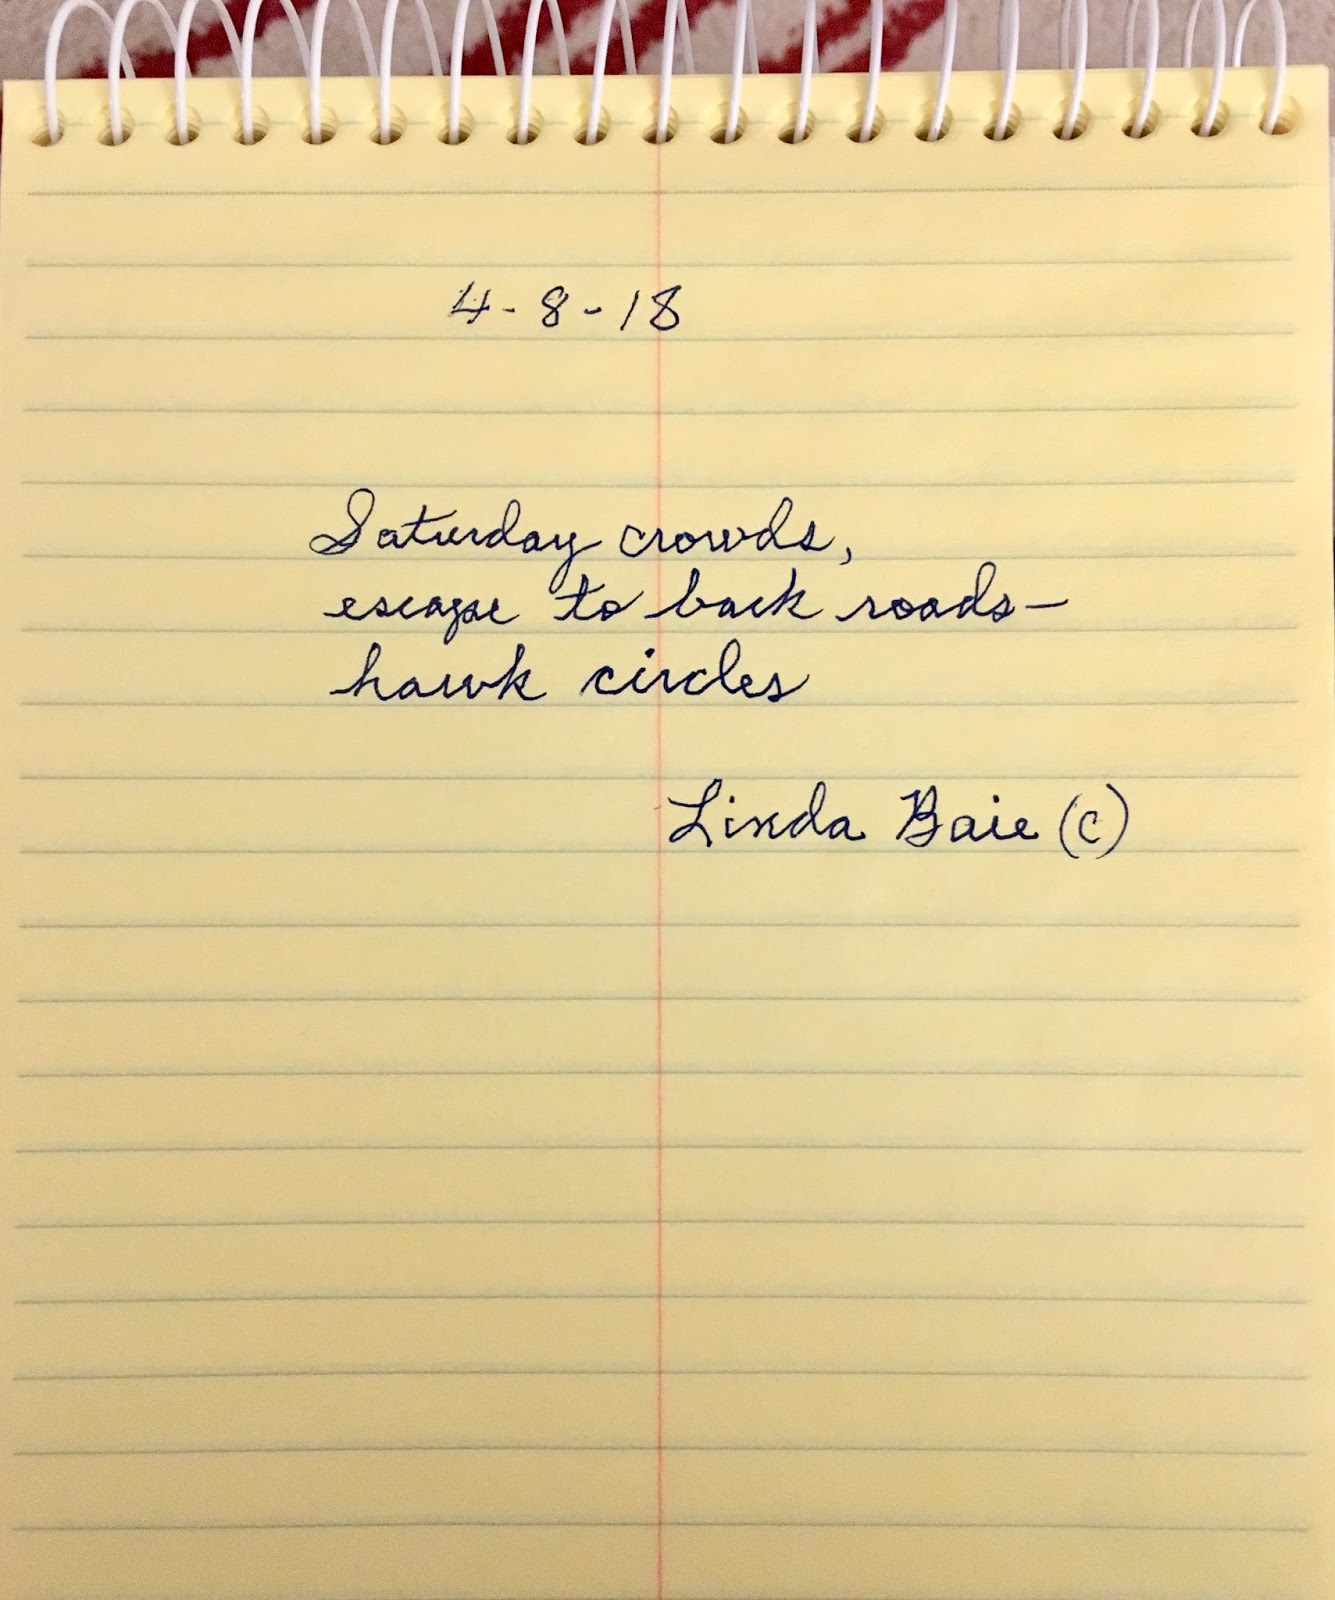 4-8-18
Saturday crowds,
escape to back roads—
hawk circles
Linda Baie (c)